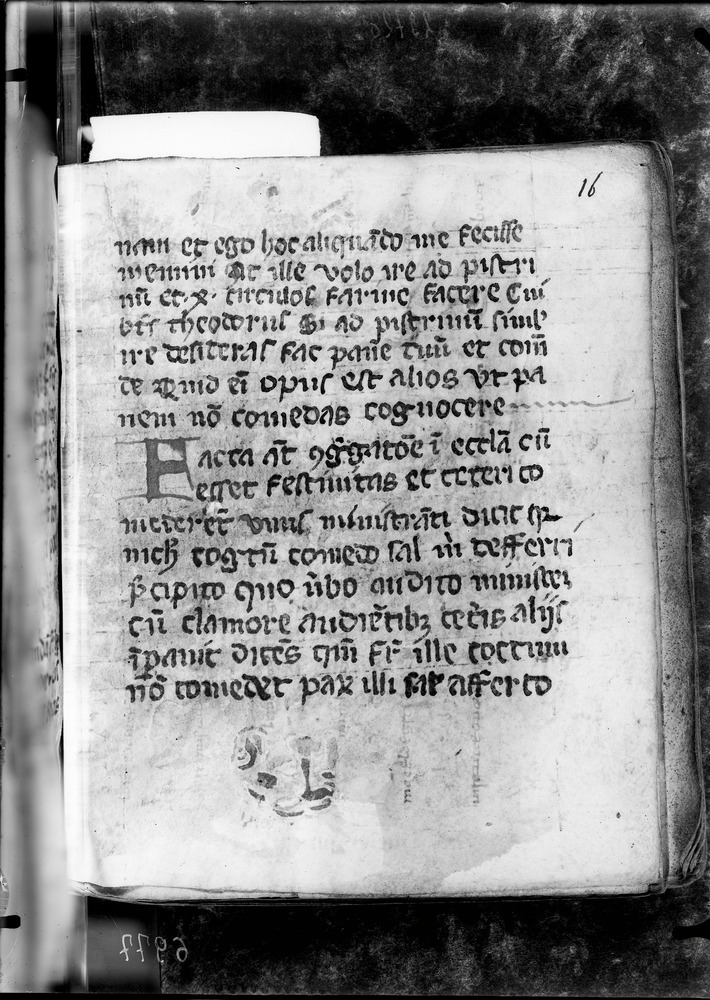 16
nam et ego hoc aliquādo me fecisse
memini At ille volo ire ad pistri
nū et .x. circulos farine facere Cui
bt̄s theodorus Si ad pistrinū simul
ire desideras fac panē tuū et com̄
de Quid eī opus est alios vt pa
nem nō comedas cognocere
Facta āt ꝯg̃gatōe ī eccłā cū
esset festiuitas et ceteri co
mederēt vnus ministrāti dicit q̄
nich̄ coctū comedo sal m̄ defferri
p̄cipito quo ūbo audito minister
cū clamore audiētibꝫ cet̄is alijs
īpauit dicēs qm̄ fr̄ ille coctum
nō comedet pax illi sal afferto
6977